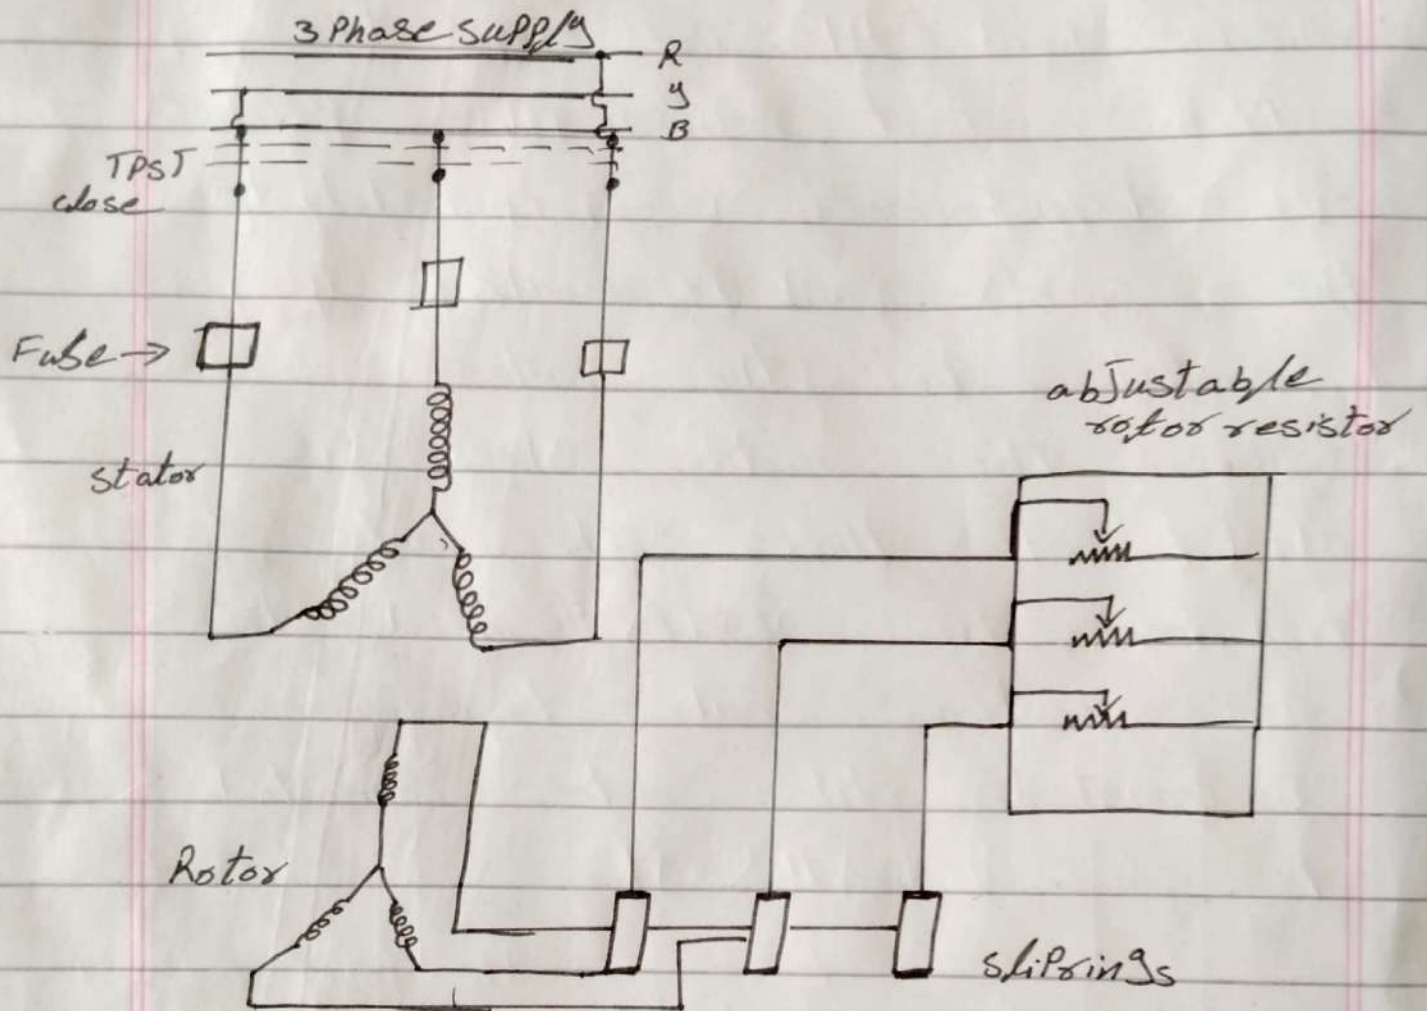 3 Phase supply
R
y
B
TPST
close
Fuse →
stator
abJustable
rotor resistor
Rotor
sliprings